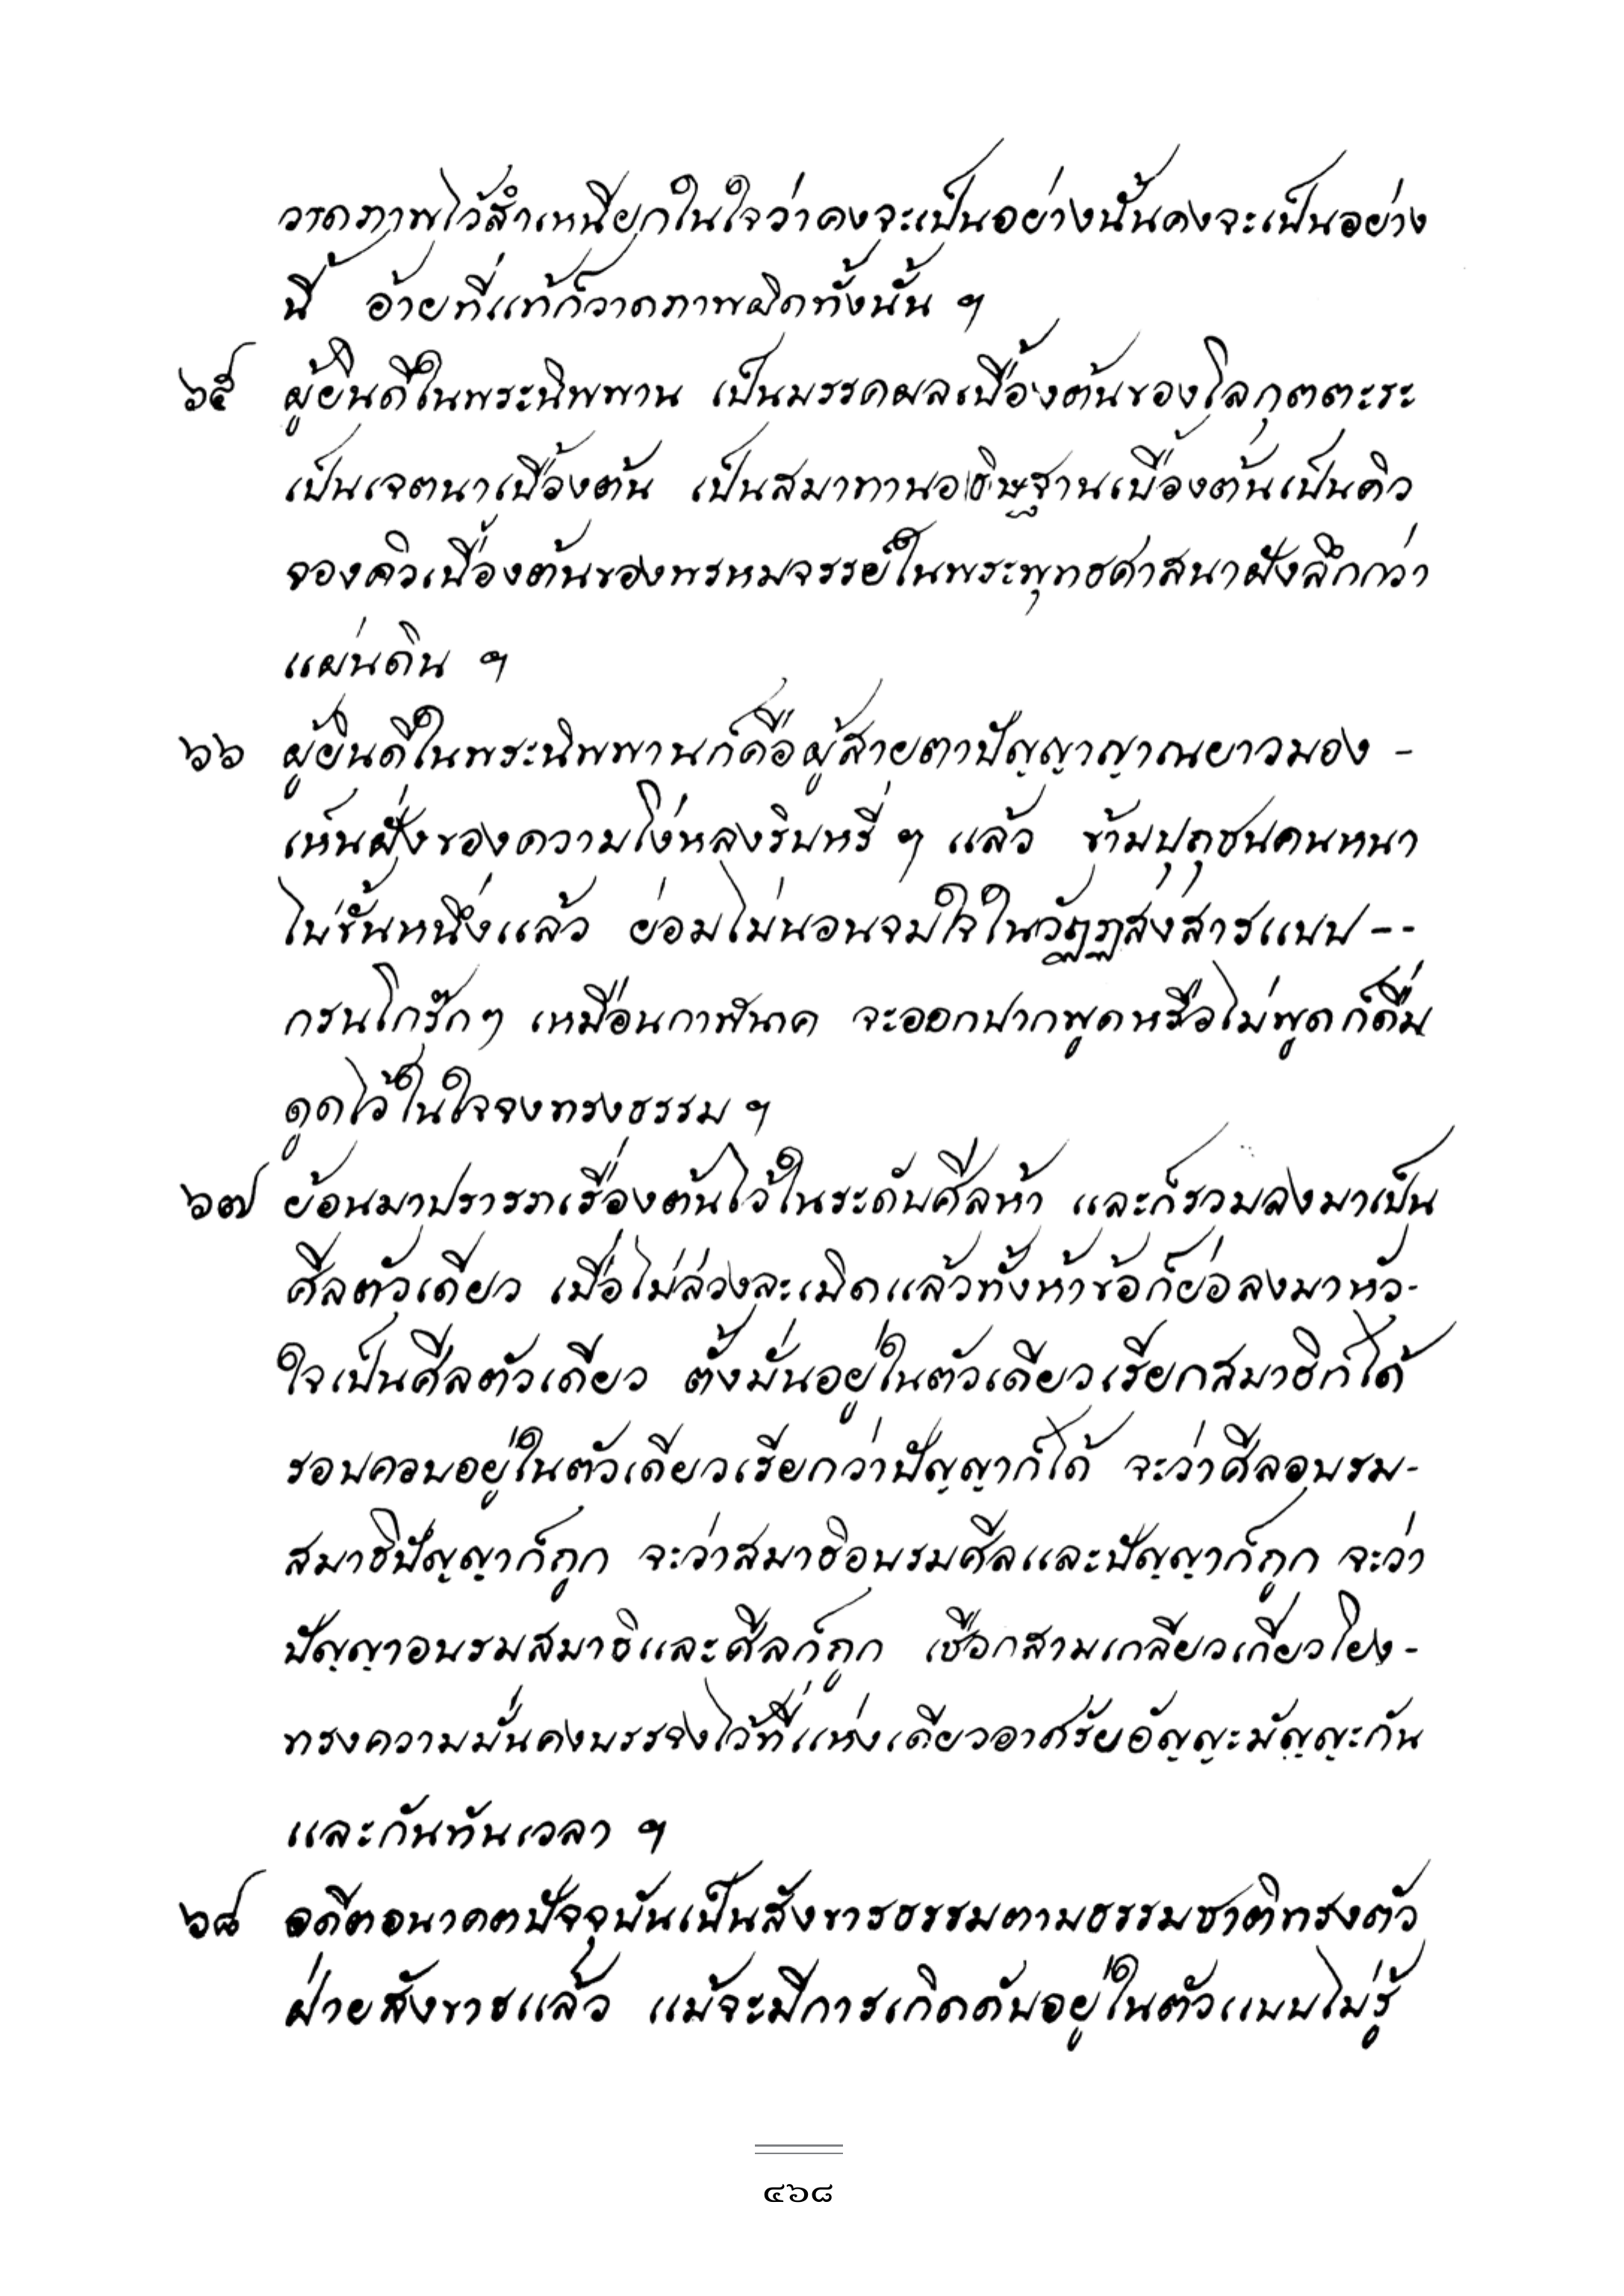 วาดภาพไว้สำเหนียกในใจว่าคงจะเป็นอย่างนั้นคงจะเป็นอย่าง
นี้ อ้ายที่แท้ก็วาดภาพผิดทั้งนั้น ฯ
๖๕ ผู้ยินดีในพระนิพพาน เป็นมรรคผลเบื้องต้นของโลกุตตะระ
เป็นเจตนาเบื้องต้น เป็นสมาทานอธิษฐานเบื้องต้นเป็นคิว
จองคิวเบื้องต้นของพรหมจรรย์ในพระพุทธศาสนาฝังลึกกว่า
แผ่นดิน ฯ
๖๖ ผู้ยินดีในพระนิพพานก็คือผู้สายตาปัญญาญาณยาวมอง -
เห็นฝั่งของความโง่หลงริบหรี่ ๆ แล้ว ข้ามปุถุชนคนหนา
ไปชั้นหนึ่งแล้ว ย่อมไม่นอนจมใจในวัฏฏสงสารแบบ --
กรนโกร๊กๆ เหมือนกาฬนาค จะออกปากพูดหรือไม่พูดก็ดื่ม
ดูดไว้ในใจจงทรงธรรม ฯ
๖๗ ย้อนมาปรารภเรื่องต้นไว้ในระดับศีลห้า และก็รวมลงมาเป็น
ศีลตัวเดียว เมื่อไม่ล่วงละเมิดแล้วทั้งห้าข้อก็ย่อลงมาหัว-
ใจเป็นศีลตัวเดียว ตั้งมั่นอยู่ในตัวเดียวเรียกสมาธิก็ได้
รอบคอบอยู่ในตัวเดียวเรียกว่าปัญญาก็ได้ จะว่าศีลอบรม-
สมาธิปัญญาก็ถูก จะว่าสมาธิอบรมศีลและปัญญาก็ถูก จะว่า
ปัญญาอบรมสมาธิและศีลก็ถูก เชือกสามเกลียวเกี่ยวโยง-
ทรงความมั่นคงบรรจงไว้ที่แห่งเดียวอาศรัยอัญญะมัญญะกัน
และกันทันเวลา ฯ
๖๘ อดีตอนาคตปัจจุบันเป็นสังขารธรรมตามธรรมชาติทรงตัว
ฝ่ายสังขารแล้ว แม้จะมีการเกิดดับอยู่ในตัวแบบไม่รู้
๔๖๘